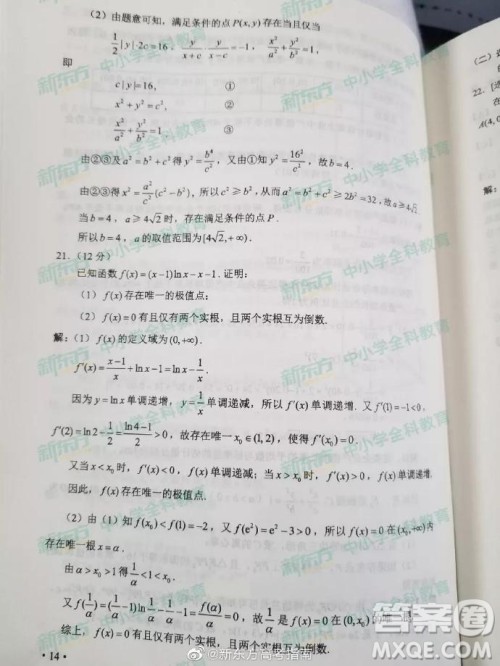 (2) 由题意可知，满足条件的点 P(x, y) 存在当且仅当
1/2|y|·2c=16, y/(x+c)·y/(x-c)=-1, x²/a²+y²/b²=1,
即
c|y|=16, ①
x²+y²=c², ②
x²/a²+y²/b²=1 ③
由②③及a²=b²+c²得y²=b⁴/c², 又由①知y²=16²/c², 故b=4.
由②③得x²=a²/c²(c²-b²), 所以c²≥b², 从而a²=b²+c²≥2b²=32, 故a≥4√2.
当b=4, a≥4√2时, 存在满足条件的点 P.
所以b=4, a的取值范围为[4√2,+∞).
21. (12 分)
已知函数 f(x)=(x-1)ln x-x-1. 证明:
(1) f(x)存在唯一的极值点;
(2) f(x)=0有且仅有两个实根, 且两个实根互为倒数.
解: (1) f(x)的定义域为(0,+∞).
f'(x)=(x-1)/x+ln x-1=ln x-1/x.
因为y=ln x单调递增, y=1/x单调递减, 所以f'(x)单调递增. 又f'(1)=-1<0,
f'(2)=ln2-1/2=(ln4-1)/2>0, 故存在唯一x₀∈(1,2), 使得f'(x₀)=0.
又当x<x₀时, f'(x)<0, f(x)单调递减; 当x>x₀时, f'(x)>0, f(x)单调递增.
因此, f(x)存在唯一的极值点.
(2) 由 (1) 知f(x₀)<f(1)=-2, 又f(e²)=e²-3>0, 所以f(x)=0在(x₀,+∞)内
存在唯一根x=α.
由α>x₀>1得1/α<1<x₀.
又f(1/α)=(1/α-1)ln1/α-1/α-1=f(α)/α=0, 故1/α是f(x)=0在(0,x₀)的唯一根.
综上, f(x)=0有且仅有两个实根, 且两个实根互为倒数.
· 14 ·
(二)
22.
A(4,0
解:
新东方 中小学全科教育
新东方 中小学全科教育
新东方 中小学全科教育
@新东方高考指南
答案圈
MXQE.COM